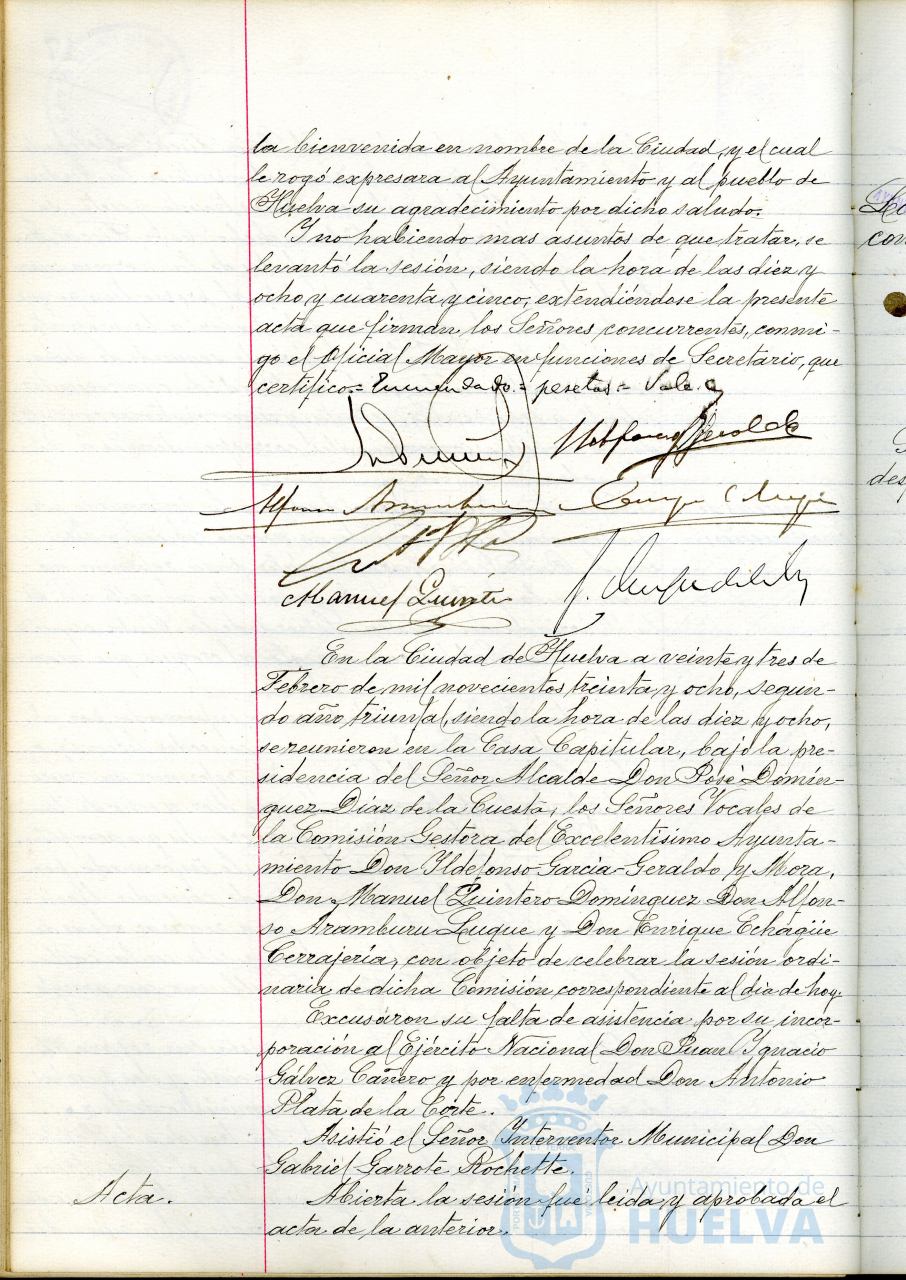 la bienvenida en nombre de la Ciudad, y el cual
le rogó expresara al Ayuntamiento y al pueblo de
Huelva su agradecimiento por dicho saludo.
Y no habiendo mas asuntos de que tratar, se
levantó la sesión, siendo la hora de las diez y
ocho y cuarenta y cinco, extendiéndose la presente
acta que firman los Señores concurrentes, conmi-
go el Oficial Mayor en funciones de Secretario, que
certifico.= Enmendado.= pesetas.= Vale.
Manuel Quintero
En la Ciudad de Huelva a veinte y tres de
Febrero de mil novecientos treinta y ocho, segun-
do año triunfal, siendo la hora de las diez y ocho,
se reunieron en la Casa Capitular, bajo la pre-
sidencia del Señor Alcalde Don José Domín-
guez Díaz de la Cuesta, los Señores Vocales de
la Comisión Gestora del Excelentísimo Ayunta-
miento Don Ildefonso García-Geraldo y Mora,
Don Manuel Quintero Domínguez Don Alfon-
so Aramburu Luque y Don Enrique Echagüe
Cerrajería, con objeto de celebrar la sesión ordi-
naria de dicha Comisión correspondiente al día de hoy.
Excusaron su falta de asistencia por su incor-
poración al Ejército Nacional Don Juan Ignacio
Gálvez Cañero y por enfermedad Don Antonio
Plata de la Corte.
Asistió el Señor Interventor Municipal Don
Gabriel Garrote Rochette.
Acta. Abierta la sesión fue leida y aprobada el
acta de la anterior.
Ayuntamiento de
HUELVA